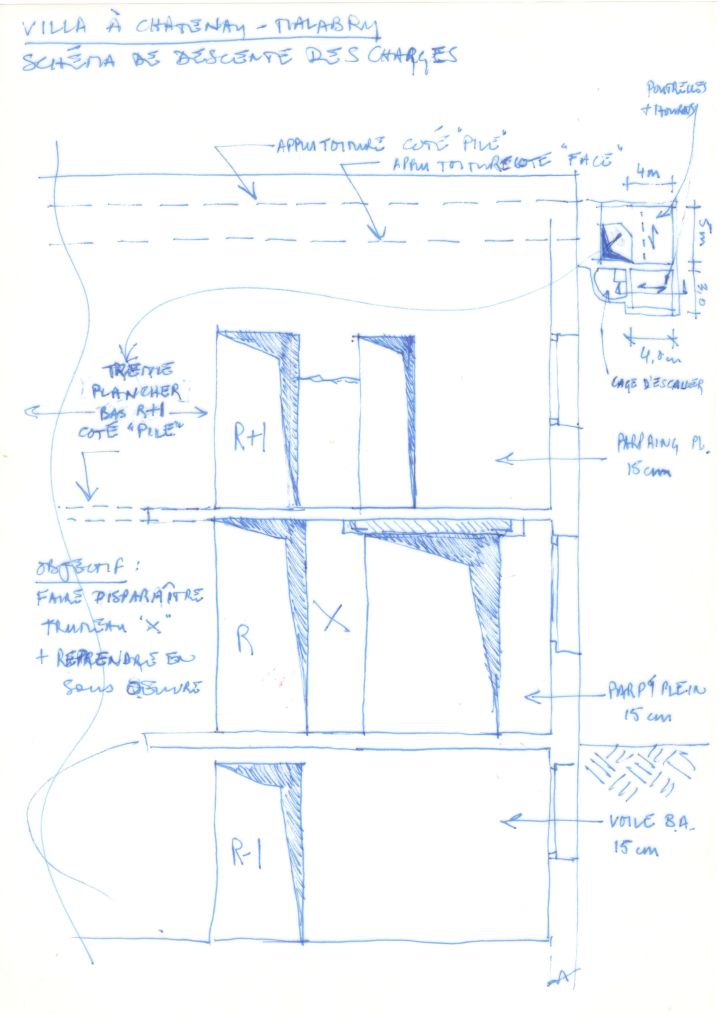 VILLA À CHATENAY-MALABRY
SCHÉMA DE DESCENTE DES CHARGES
POUTRELLES
+ HOURDIS
APPUI TOITURE COTÉ "PILE"
APPUI TOITURE COTE "FACE"
4m
5m
3,0
4,0m
CAGE D'ESCALIER
TREMIE
PLANCHER
BAS R+1
COTÉ "PILE"
R+1
PARPAING PL.
15cm
OBJECTIF :
FAIRE DISPARAÎTRE
TRUMEAU "X"
+ REPRENDRE EN
SOUS OEUVRE
R
X
PARPG PLEIN
15 cm
R-1
VOILE B.A.
15 cm